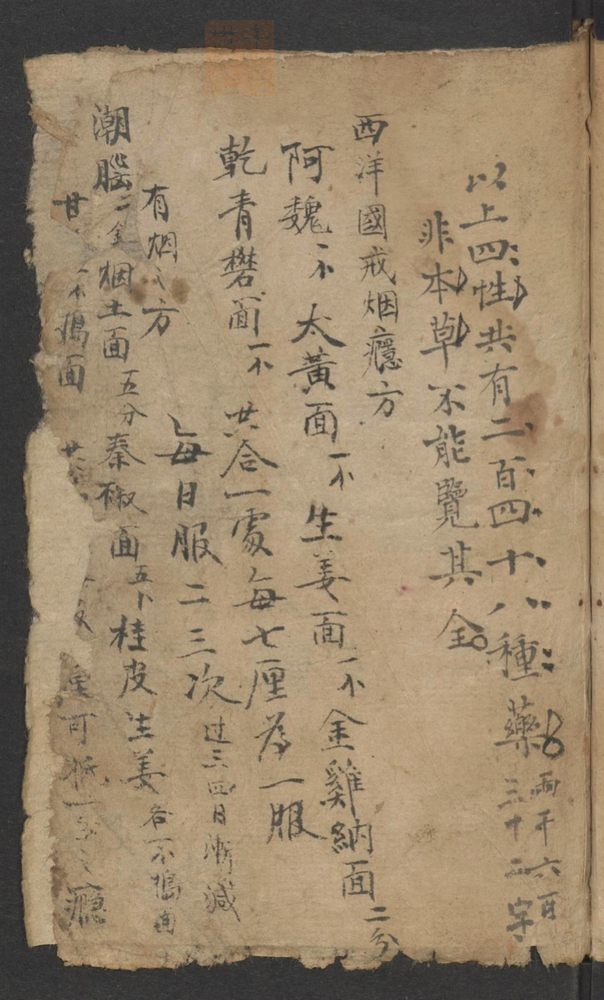 以上四性共有二百四十八種藥 兩千六百三十二字
非本草不能覽其全
西洋國戒烟癮方
阿魏一不太黃面一不生姜面一不金雞納面二分
乾青礬面一不共合一處每七厘為一服
每日服二三次过三四日漸減
有烟之方
潮腦二全烟土面五分秦椒面五卜桂皮生姜各一不搗面
甘 不搗面 可抵一 之癮